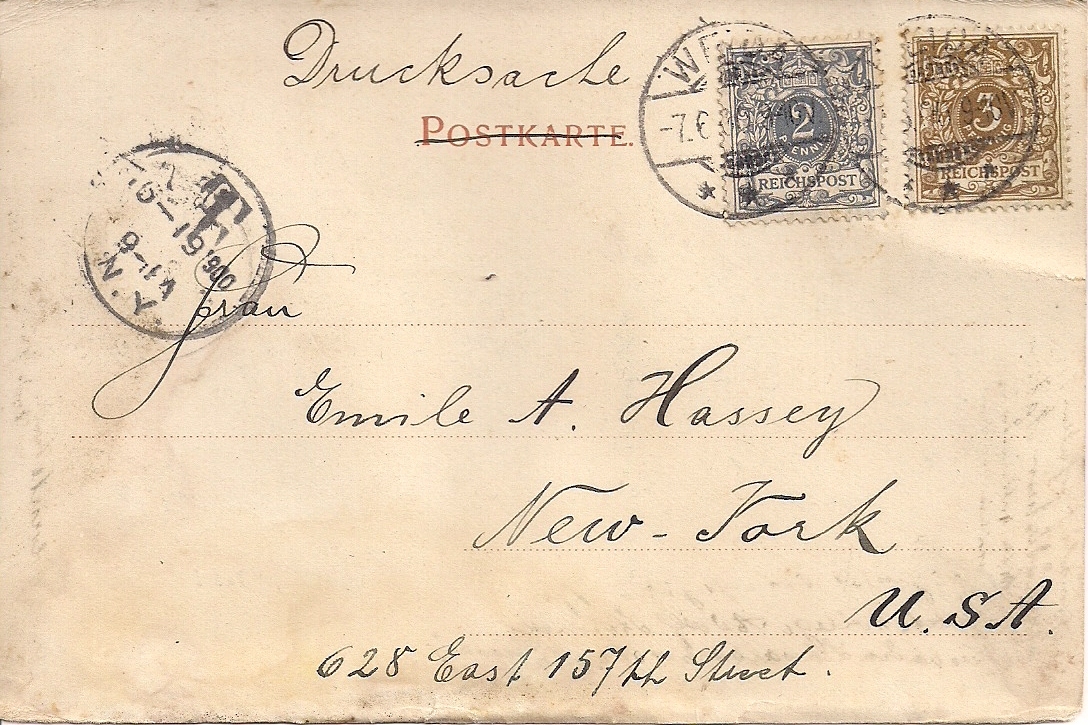 Drucksache
POSTKARTE.
2
PFENNIG
REICHSPOST
3
PFENNIG
REICHSPOST
-7.6
N.Y.
1900
Frau
Emile A. Hassey
New-York
U.S.A.
628 East 157th Street.